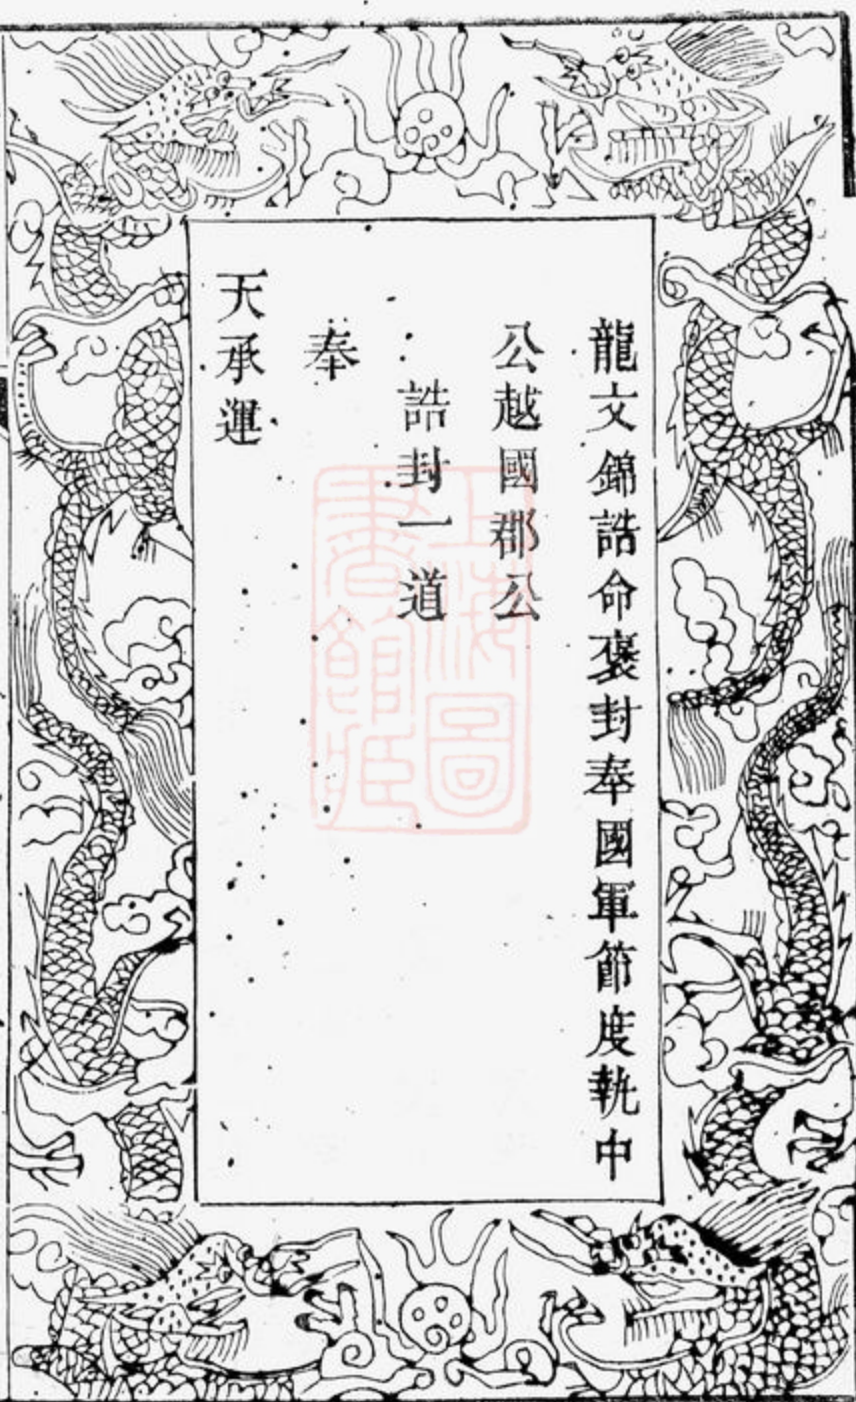 龍文錦誥命褒封奉國軍節度執中
公越國郡公
誥封一道
奉
天承運
上海圖
書館藏